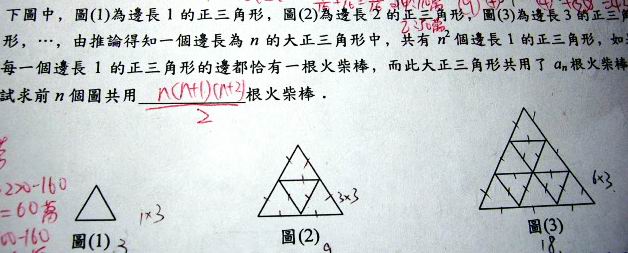 下圖中，圖(1)為邊長 1 的正三角形，圖(2)為邊長 2 的正三角形，圖(3)為邊長 3 的正三角
形，⋯，由推論得知一個邊長為 n 的大正三角形中，共有 n² 個邊長 1 的正三角形，如
每一個邊長 1 的正三角形的邊都恰有一根火柴棒，而此大正三角形共用了 aₙ 根火柴棒
試求前 n 個圖共用 n(n+1)(n+2)/2 根火柴棒．
220-160
=60萬
00-160
1×3
3×3
6×3
圖(1) 3
圖(2) 9
圖(3) 18